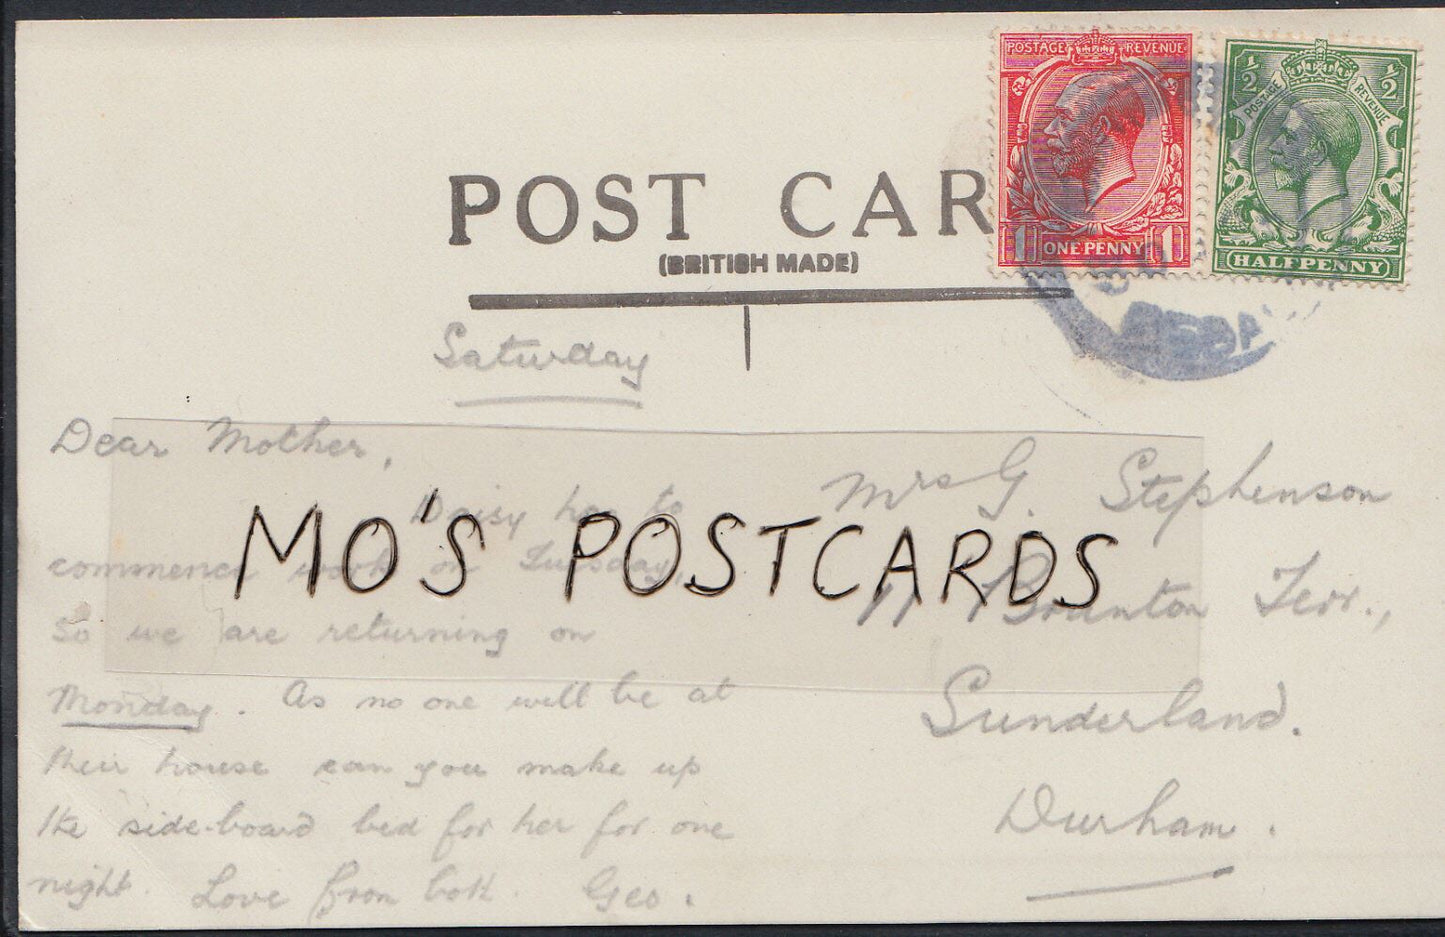 POSTAGE REVENUE
1 ONE PENNY 1
½ POSTAGE REVENUE ½
HALFPENNY
POST CAR
(BRITISH MADE)
Saturday
Dear Mother,
Daisy has to
commence work on Tuesday,
so we are returning on
Monday. As no one will be at
their house can you make up
the side-board bed for her for one
night. Love from both. Geo.
MO'S POSTCARDS
Mrs G. Stephenson
11 Brunton Terr.,
Sunderland.
Durham.